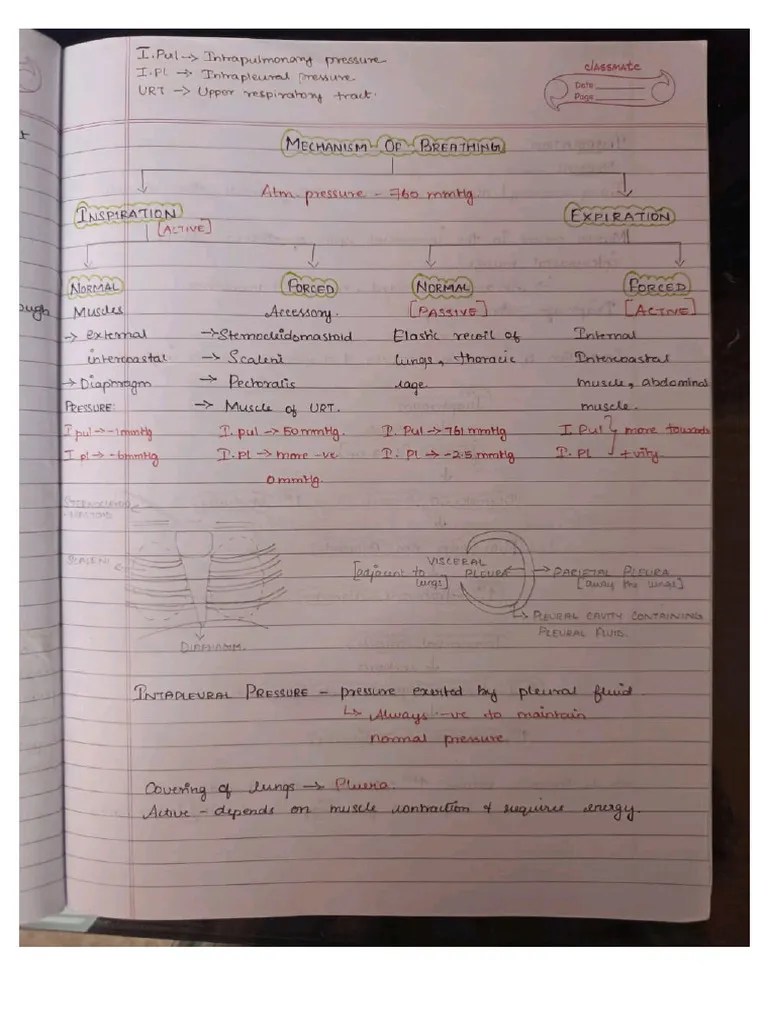 I. Pul → Intrapulmonary pressure
I. Pl → Intrapleural pressure
URT → Upper respiratory tract.
classmate
Date
Page
MECHANISM OF BREATHING
Atm. pressure - 760 mmHg.
INSPIRATION
[ACTIVE]
EXPIRATION
NORMAL
Muscles
→ external
intercoastal
→ Diaphragm
PRESSURE:
I pul → -1mmHg
I pl → -6mmHg
FORCED
Accessory.
→ Sternocleidomastoid
→ Scaleni
→ Pectoralis
→ Muscle of URT.
I. pul → 50 mmHg.
I. PL → more -ve
0 mmHg.
NORMAL
[PASSIVE]
Elastic recoil of
lungs, thoracic
cage.
I. Pul → 761 mmHg
I. Pl → -2.5 mmHg
FORCED
[ACTIVE]
Internal
Intercoastal
muscle, abdominal
muscle.
I Pul } more towards
I. Pl } +vity.
SCALENI
DIAPHRAGM.
VISCERAL
PLEURA
[adjacent to
lungs]
→ PARIETAL PLEURA
[away the lungs]
↳ PLEURAL CAVITY CONTAINING
PLEURAL FLUID.
INTAPLEURAL PRESSURE - pressure exerted by pleural fluid
↳ Always -ve to maintain
normal pressure.
Covering of lungs → Pluera.
Active - depends on muscle contraction & requires energy.
ough